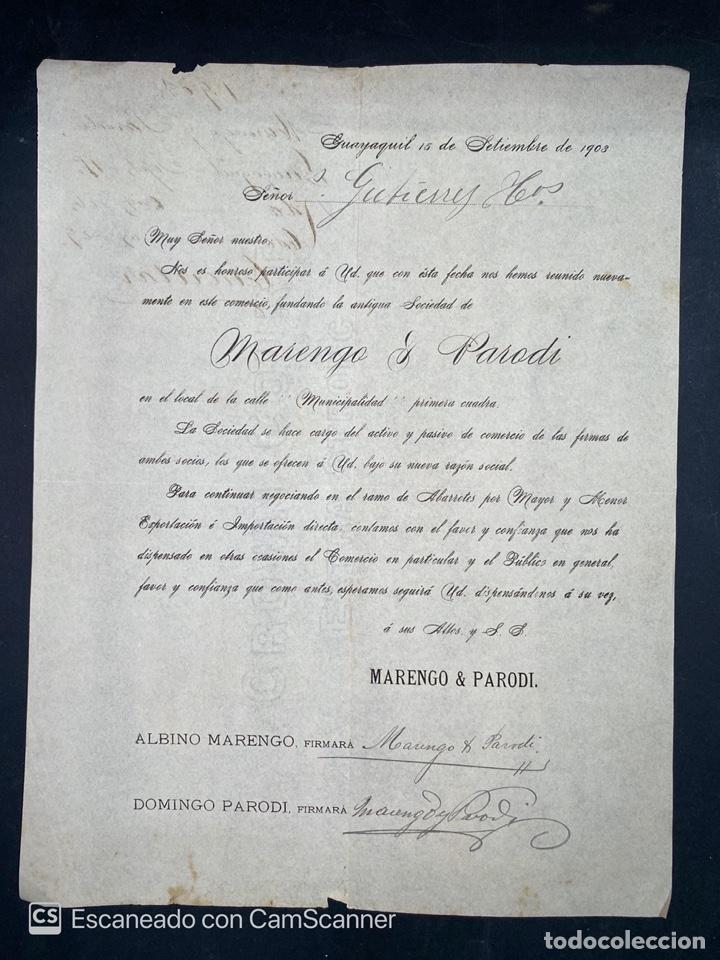 Guayaquil 15 de Setiembre de 1903
Señor Gutierrez Hos.
Muy Señor nuestro:
Nos es honroso participar á Ud. que con ésta fecha nos hemos reunido nueva-
mente en este comercio, fundando la antigua Sociedad de
Marengo & Parodi
en el local de la calle "Municipalidad" primera cuadra.
La Sociedad se hace cargo del activo y pasivo de comercio de las firmas de
ambos socios, los que se ofrecen á Ud. bajo su nueva razón social.
Para continuar negociando en el ramo de Abarrotes por Mayor y Menor
Exportación é Importación directa, contamos con el favor y confianza que nos ha
dispensado en otras ocasiones el Comercio en particular y el Público en general,
favor y confianza que como antes, esperamos seguirá Ud. dispensándonos á su vez,
á sus Attos. y S. S.
MARENGO & PARODI.
ALBINO MARENGO, FIRMARÁ Marengo & Parodi.
DOMINGO PARODI, FIRMARÁ Marengo y Parodi
CS Escaneado con CamScanner
todocoleccion